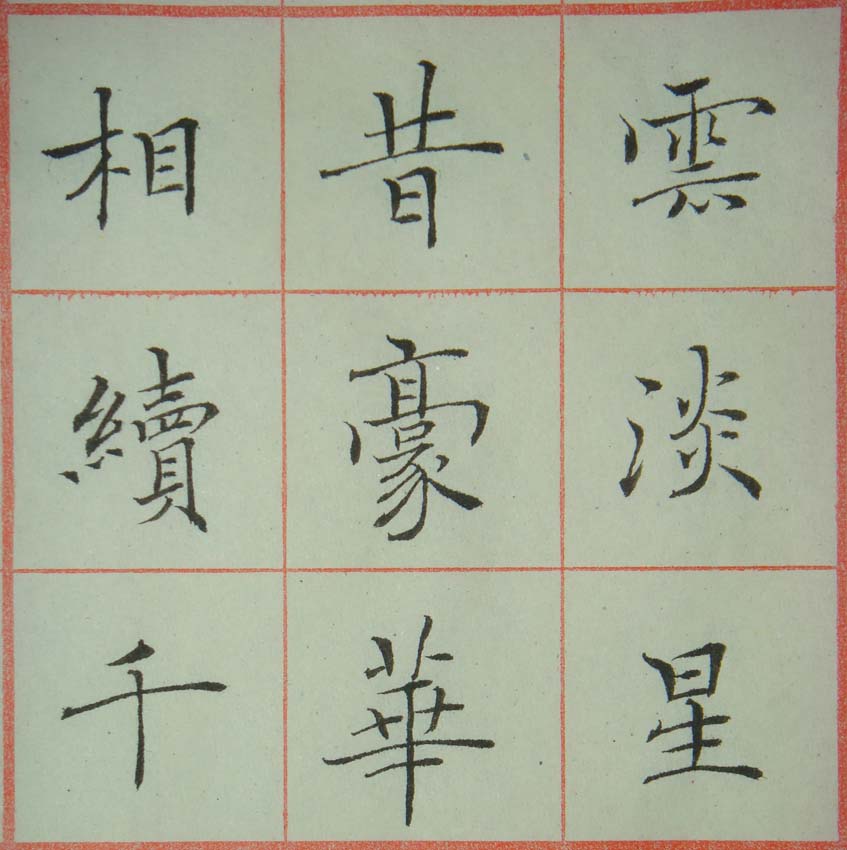 雲淡星
昔豪華
相續千